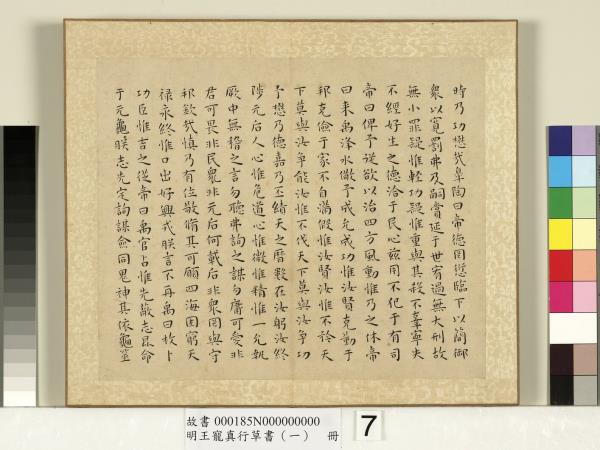 時乃功懋哉皋陶曰帝德罔愆臨下以簡御
衆以寬罰弗及嗣賞延于世宥過無大刑故
無小罪疑惟輕功疑惟重與其殺不辜寧失
不經好生之德洽于民心茲用不犯于有司
帝曰俾予從欲以治四方風動惟乃之休帝
曰來禹洚水儆予成允成功惟汝賢克勤于
邦克儉于家不自滿假惟汝賢汝惟不矜天
下莫與汝爭能汝惟不伐天下莫與汝爭功
予懋乃德嘉乃丕績天之曆數在汝躬汝終
陟元后人心惟危道心惟微惟精惟一允執
厥中無稽之言勿聽弗詢之謀勿庸可愛非
君可畏非民衆非元后何戴后非衆罔與守
邦欽哉慎乃有位敬脩其可願四海困窮天
祿永終惟口出好興戎朕言不再禹曰枚卜
功臣惟吉之從帝曰禹官占惟先蔽志昆命
于元龜朕志先定詢謀僉同鬼神其依龜筮
故書 000185N000000000
明王寵真行草書（一） 冊
7